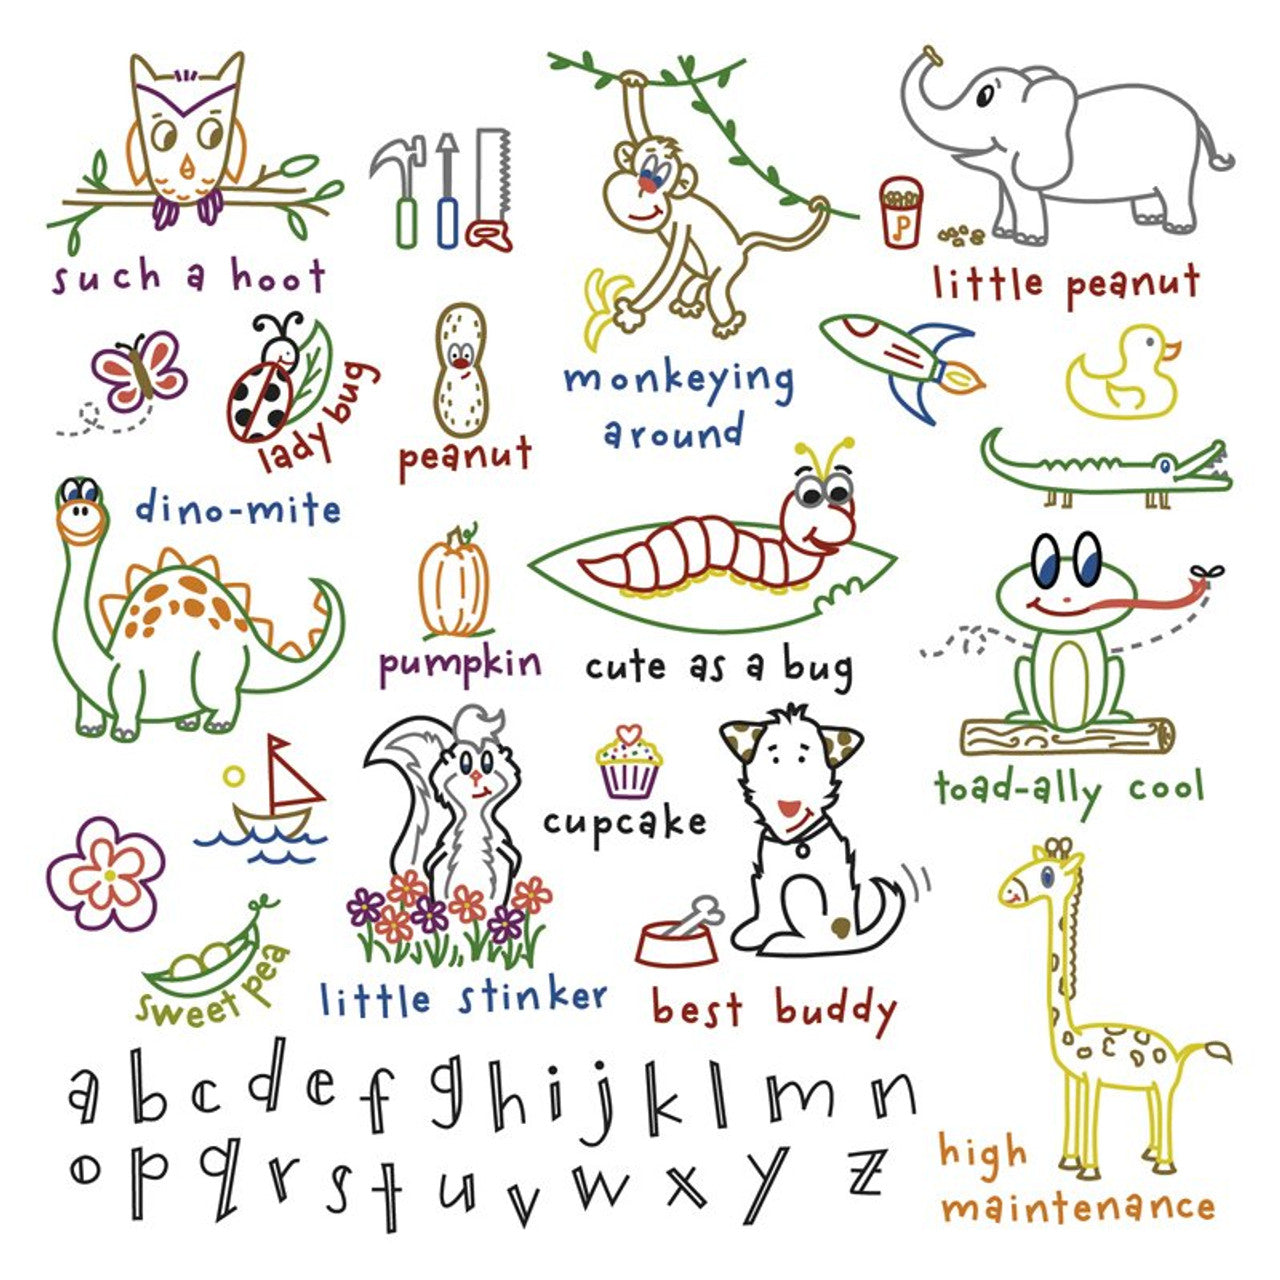 such a hoot
P
little peanut
lady bug
peanut
monkeying
around
dino-mite
pumpkin
cute as a bug
toad-ally cool
cupcake
sweet pea
little stinker
best buddy
a b c d e f g h i j k l m n
o p q r s t u v w x y z
high
maintenance